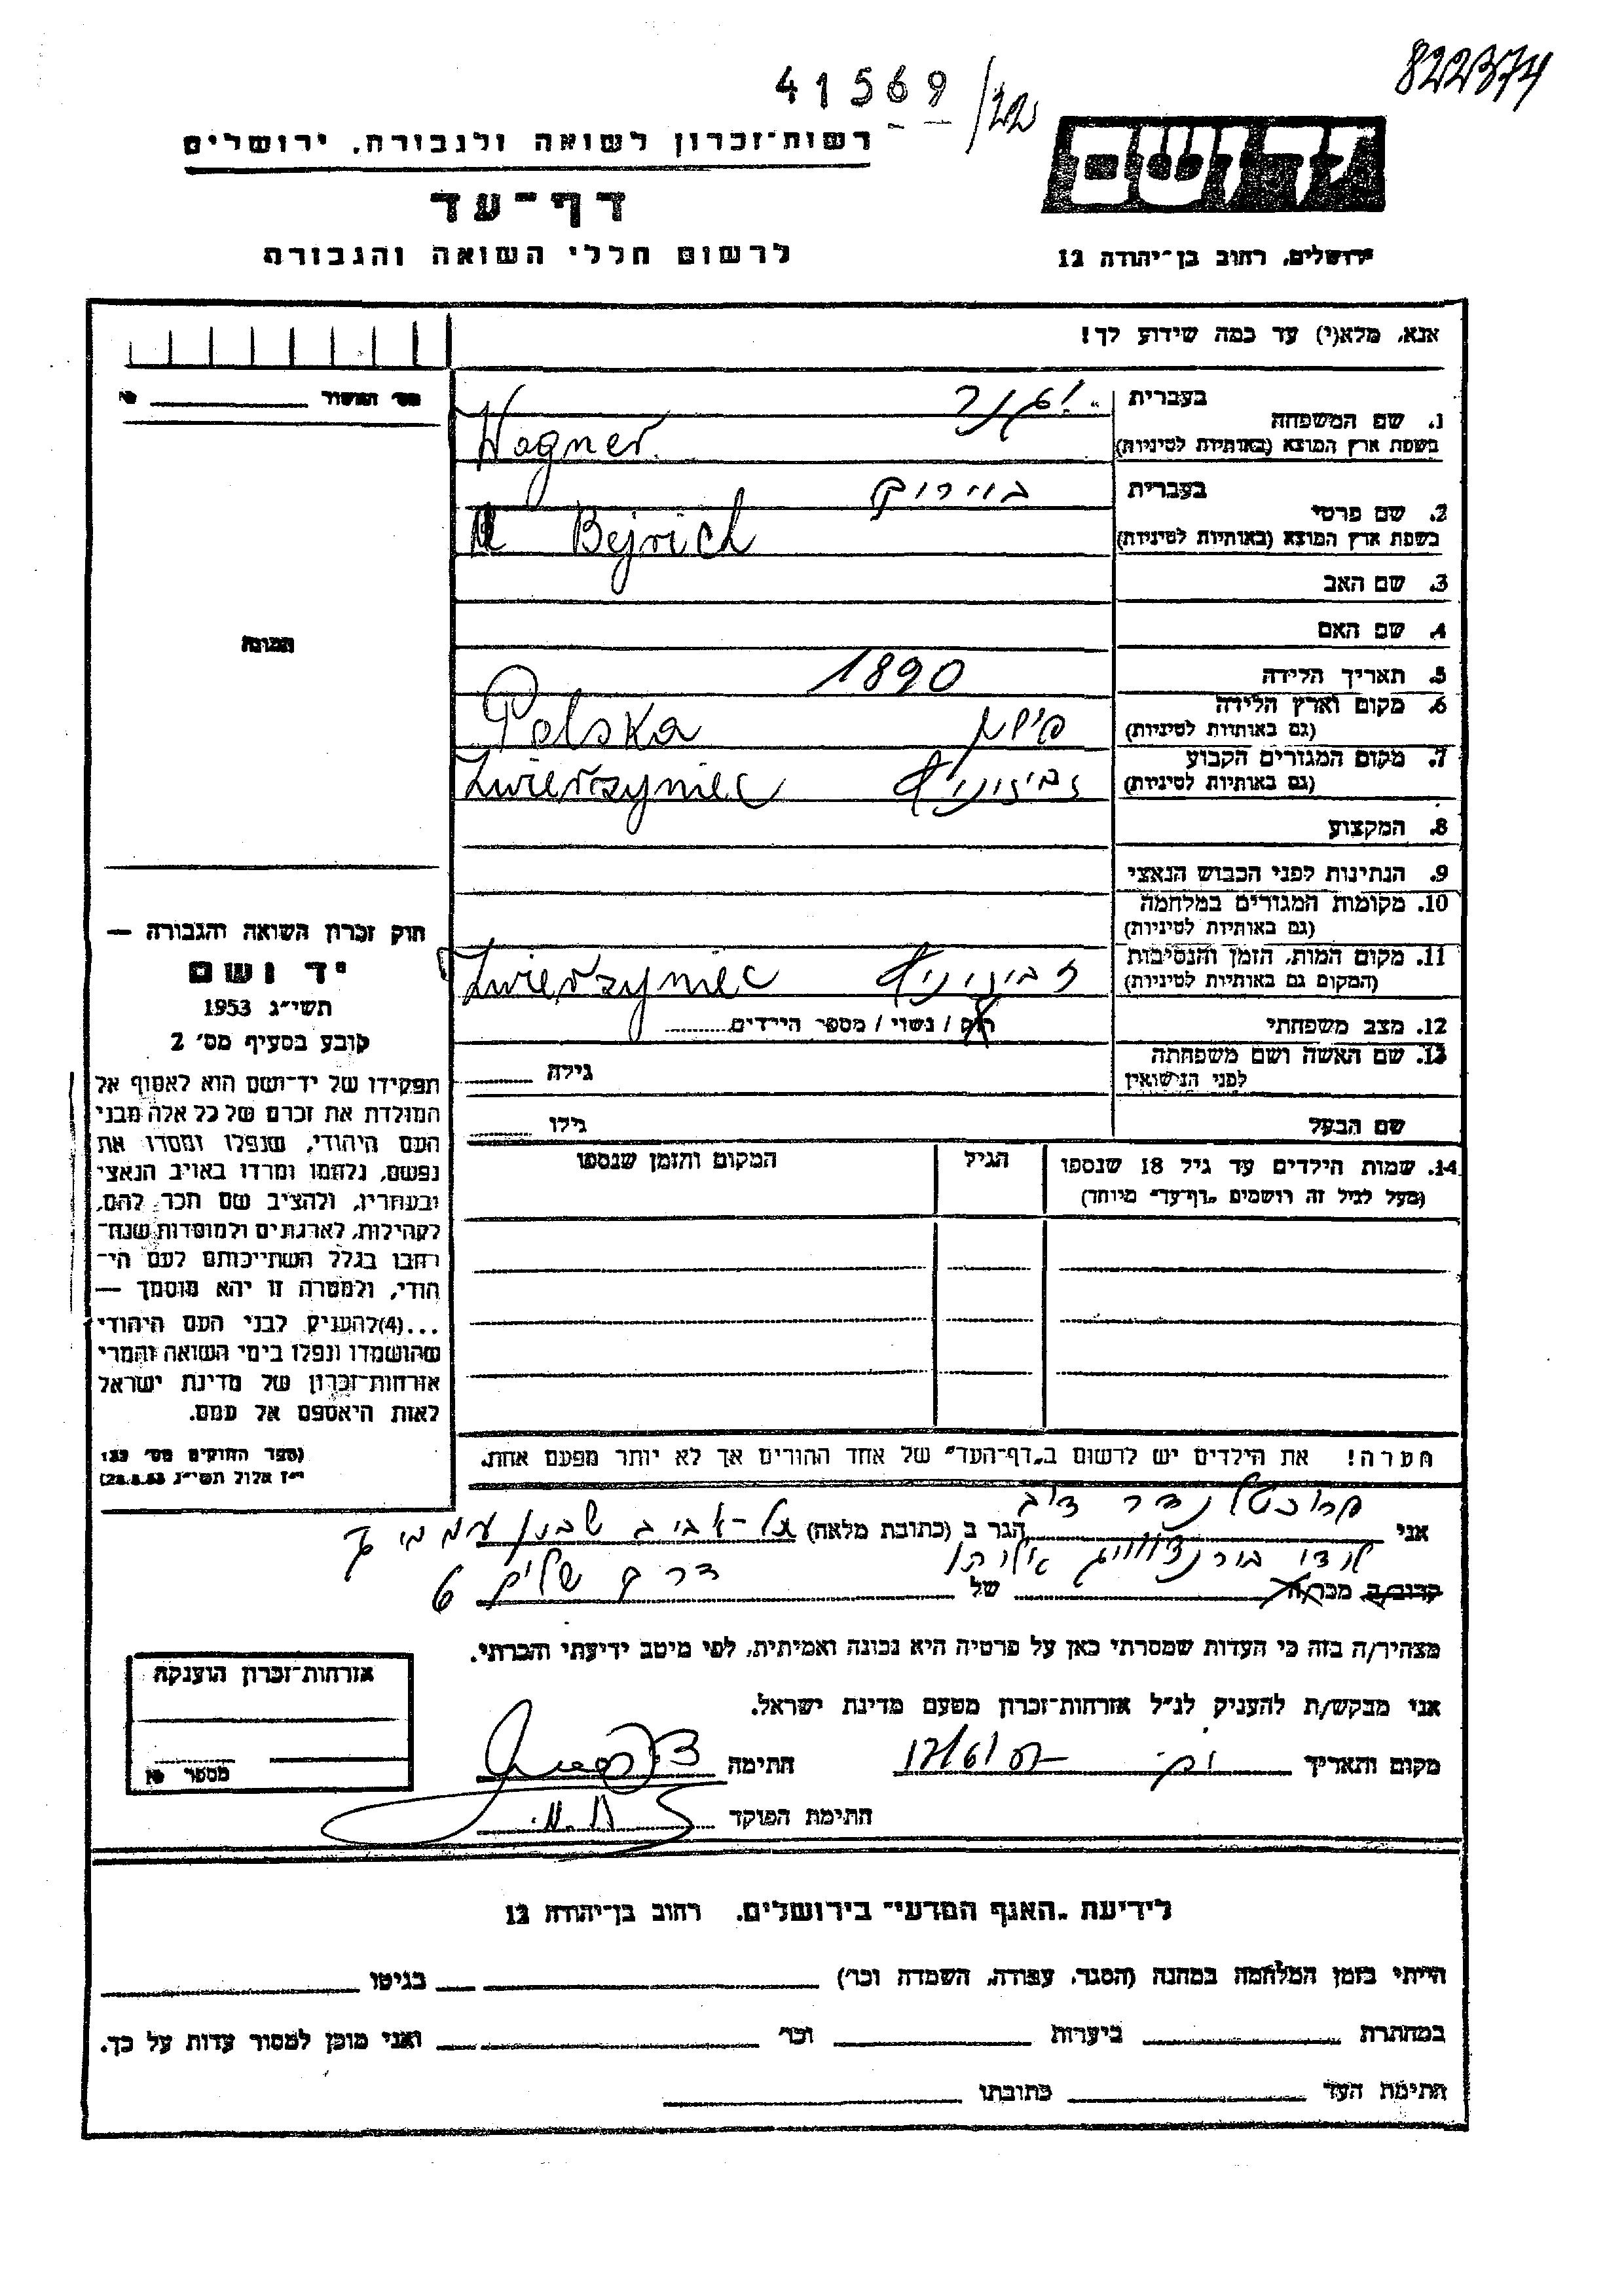 822374
41569/22
ידושם
רשות-זכרון לשואה ולגבורה, ירושלים
דף-עד
לרשום חללי השואה והגבורה
ירושלים, רחוב בן-יהודה 12
אנא, מלא(י) עד כמה שידוע לך!
1. שם המשפחה
בעברית
בשפת ארץ המוצא (באותיות לטיניות)
Wagner
2. שם פרטי
בעברית
בשפת ארץ המוצא (באותיות לטיניות)
Bejrich
3. שם האב
4. שם האם
5. תאריך הלידה 1890
6. מקום וארץ הלידה
(גם באותיות לטיניות)
פולין Polska
7. מקום המגורים הקבוע
(גם באותיות לטיניות)
Zwierzyniec
8. המקצוע
9. הנתינות לפני הכבוש הנאצי
10. מקומות המגורים במלחמה
(גם באותיות לטיניות)
11. מקום המות, הזמן והנסיבות
(המקום גם באותיות לטיניות)
Zwierzyniec
12. מצב משפחתי
רוק / נשוי / מספר הילדים
13. שם האשה ושם משפחתה
לפני הנישואין
גילה
שם הבעל
גילו
14. שמות הילדים עד גיל 18 שנספו
(מעל לגיל זה רושמים „דף-עד" מיוחד)
הגיל
המקום והזמן שנספו
הערה! את הילדים יש לרשום ב„דף-העד" של אחד ההורים אך לא יותר מפעם אחת.
מס' האשור
תמונה
חוק זכרון השואה והגבורה —
יד ושם
תשי"ג 1953
קובע בסעיף מס' 2
תפקידו של יד-ושם הוא לאסוף אל
המולדת את זכרם של כל אלה מבני
העם היהודי, שנפלו ומסרו את
נפשם, נלחמו ומרדו באויב הנאצי
ובעוזריו, ולהציב שם וזכר להם,
לקהילות, לארגונים ולמוסדות שנח-
רבו בגלל השתייכותם לעם הי-
הודי, ולמטרה זו יהא מוסמך —
...(4)להעניק לבני העם היהודי
שהושמדו ונפלו בימי השואה והמרי
אזרחות-זכרון של מדינת ישראל
לאות היאספם אל עמם.
(ספר החוקים מס' 132
י"ז אלול תשי"ג 28.8.53)
אני
הגר ב (כתובת מלאה) תל-אביב
קרוב/ה מכר/ה של
6
מצהיר/ה בזה כי העדות שמסרתי כאן על פרטיה היא נכונה ואמיתית, לפי מיטב ידיעתי והכרתי.
אני מבקש/ת להעניק לנ"ל אזרחות-זכרון מטעם מדינת ישראל.
מקום ותאריך
חתימה
חתימת הפוקד
אזרחות-זכרון הוענקה
מספר
לידיעת „האגף המדעי" בירושלים, רחוב בן-יהודה 12
הייתי בזמן המלחמה במחנה (הסגר, עבודה, השמדה וכו') בגיטו
במחתרת ביערות וכו' ואני מוכן למסור עדות על כך.
חתימת העד כתובתו